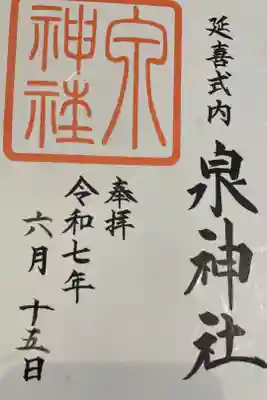 延喜式内
泉神社
奉拝
令和七年
六月十五日
泉
神社